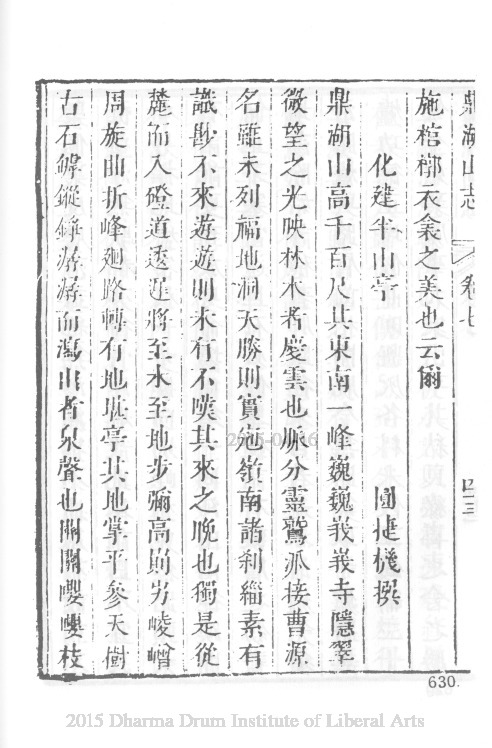 鼎湖山志 卷七 四三
施棺槨衣衾之美也云爾
化建半山亭 圓捷機撰
鼎湖山高千百尺其東南一峰巍巍峩峩寺隱翠
微望之光映林木者慶雲也脈分靈鷲派接曹源
名雖未列福地洞天勝則實冠嶺南諸刹緇素有
識尠不來遊遊則未有不嘆其來之晚也獨是從
麓而入磴道透迤將至未至地步彌高崩屴崚嶒
周旋曲折峰廻路轉有地堪亭其地掌平參天樹
古石鏬鏦錚潺潺而瀉出者泉聲也關關嚶嚶枝
630.
2015 Dharma Drum Institute of Liberal Arts